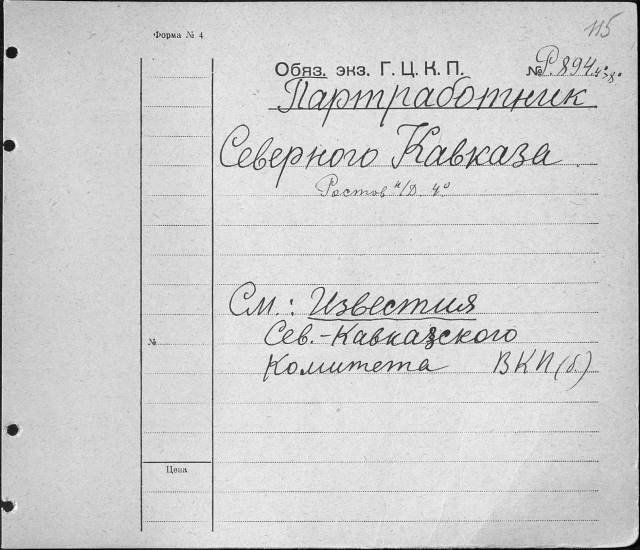 115
Форма № 4
Обяз. экз. Г. Ц. К. П. № Р. 894. 4°-8°
Партработник
Северного Кавказа
Ростов н/Д. 4°
См.: Известия
Сев.-Кавказского
№
Комитета ВКП(б.)
Цена